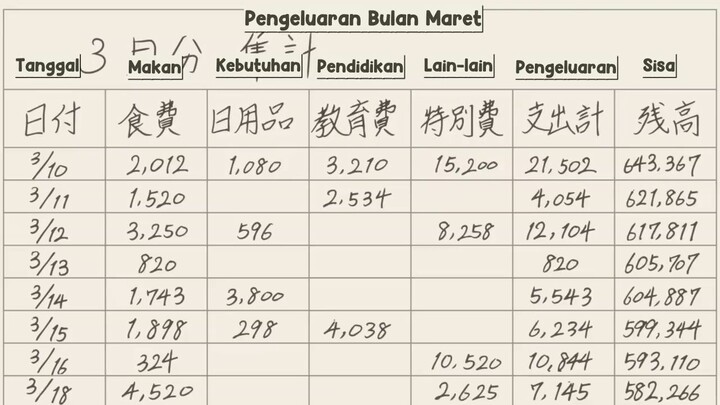 Pengeluaran Bulan Maret
3月分 集計
Tanggal Makan Kebutuhan Pendidikan Lain-lain Pengeluaran Sisa
日付 食費 日用品 教育費 特別費 支出計 残高
3/10 2,012 1,080 3,210 15,200 21,502 643,367
3/11 1,520 2,534 4,054 621,865
3/12 3,250 596 8,258 12,104 617,811
3/13 820 820 605,707
3/14 1,743 3,800 5,543 604,887
3/15 1,898 298 4,038 6,234 599,344
3/16 324 10,520 10,844 593,110
3/18 4,520 2,625 7,145 582,266